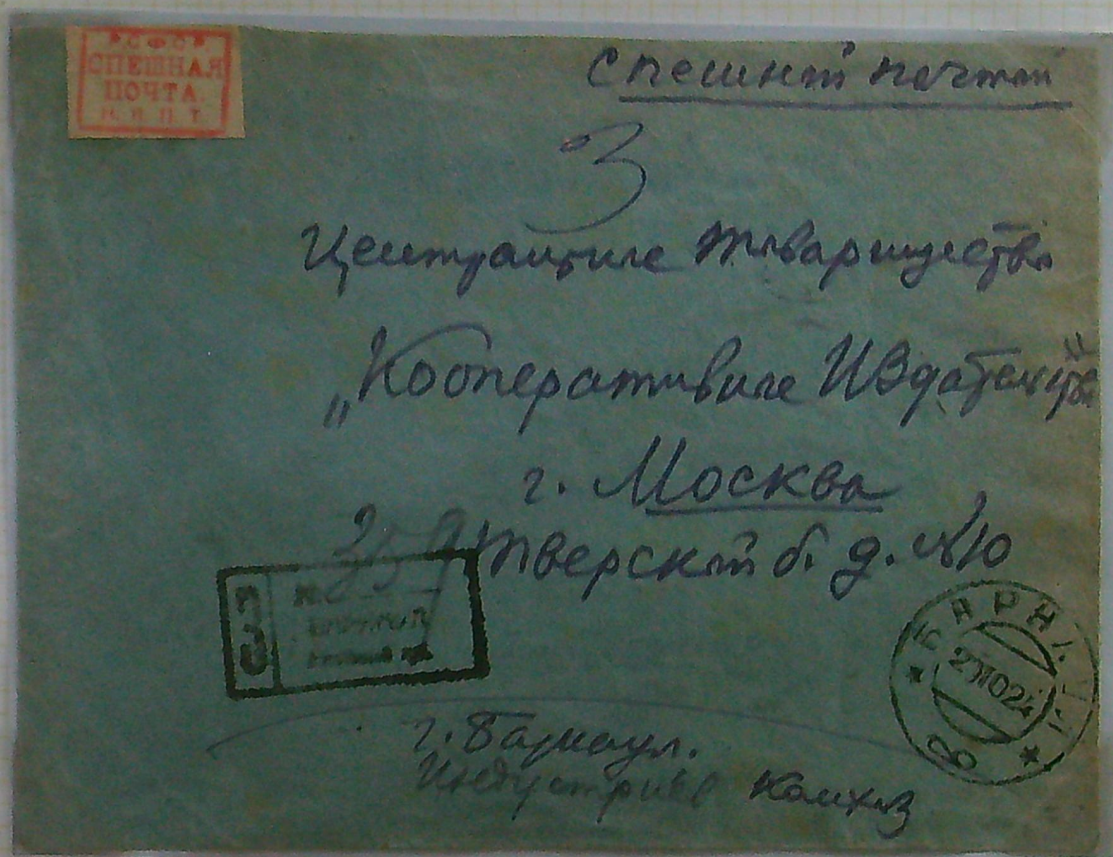 Р.С.Ф.С.Р.
СПЕШНАЯ
ПОЧТА.
Н. К. П. Т.
Спешной почтой
З
Центральное товарищество
„Кооперативное Издательство"
г. Москва
359
Тверской б. д. №10
БАРНАУЛ
201024
г. Барнаул.
Колхоз